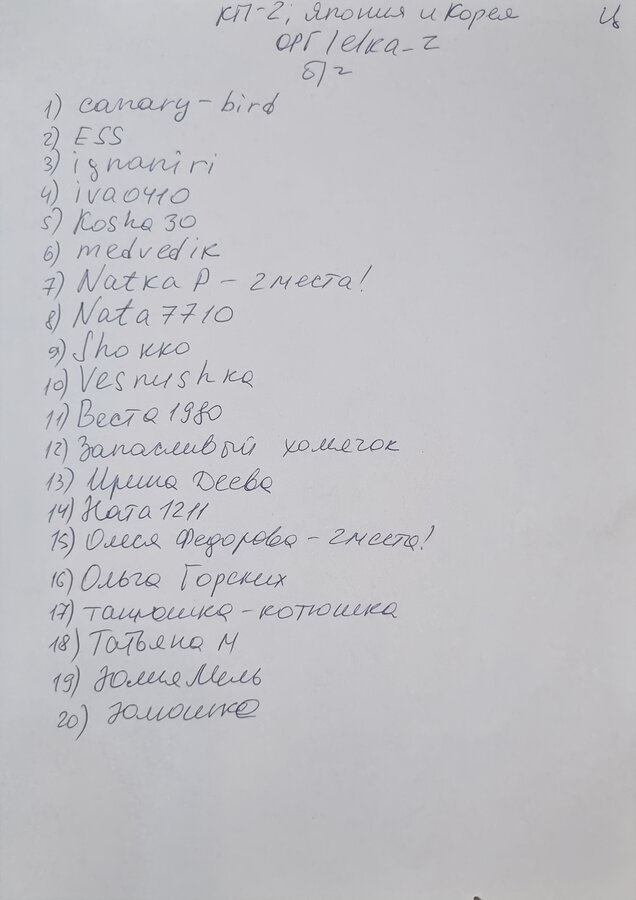 КП-2, Япония и Корея Ц
ОРГ/elka-2
б/2
1) canary-bird
2) ESS
3) ignaniri
4) iva0410
5) Kosha30
6) medvedik
7) Natka P - 2 места!
8) Nata7710
9) Shokko
10) Vesnushka
11) Веста1980
12) Запасливый хомячок
13) Ирина Деева
14) Ната1211
15) Олеся Федорова - 2 места!
16) Ольга Горских
17) танюшка-котюшка
18) Татьяна М
19) ЮлияМель
20) Юлюшка